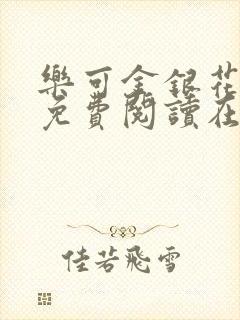 樂可金銀花
免費閱讀在
佳若飛雪